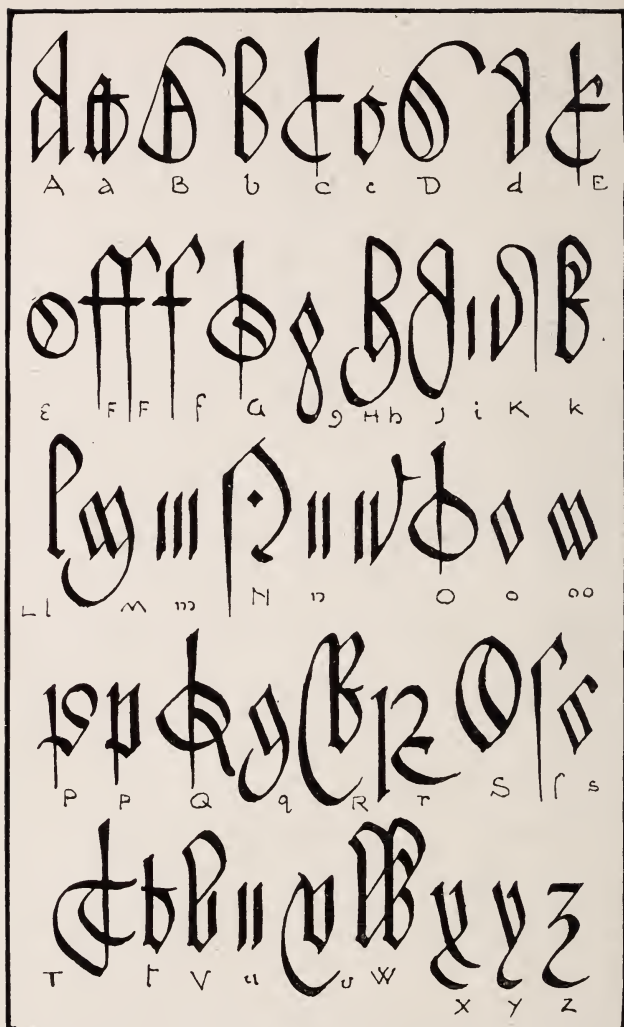 A a B b C c D d E
E F F f G g H h J i K k
L l M m N n O o oo
P P Q q R r S ſ s
T t V u v W
X y z